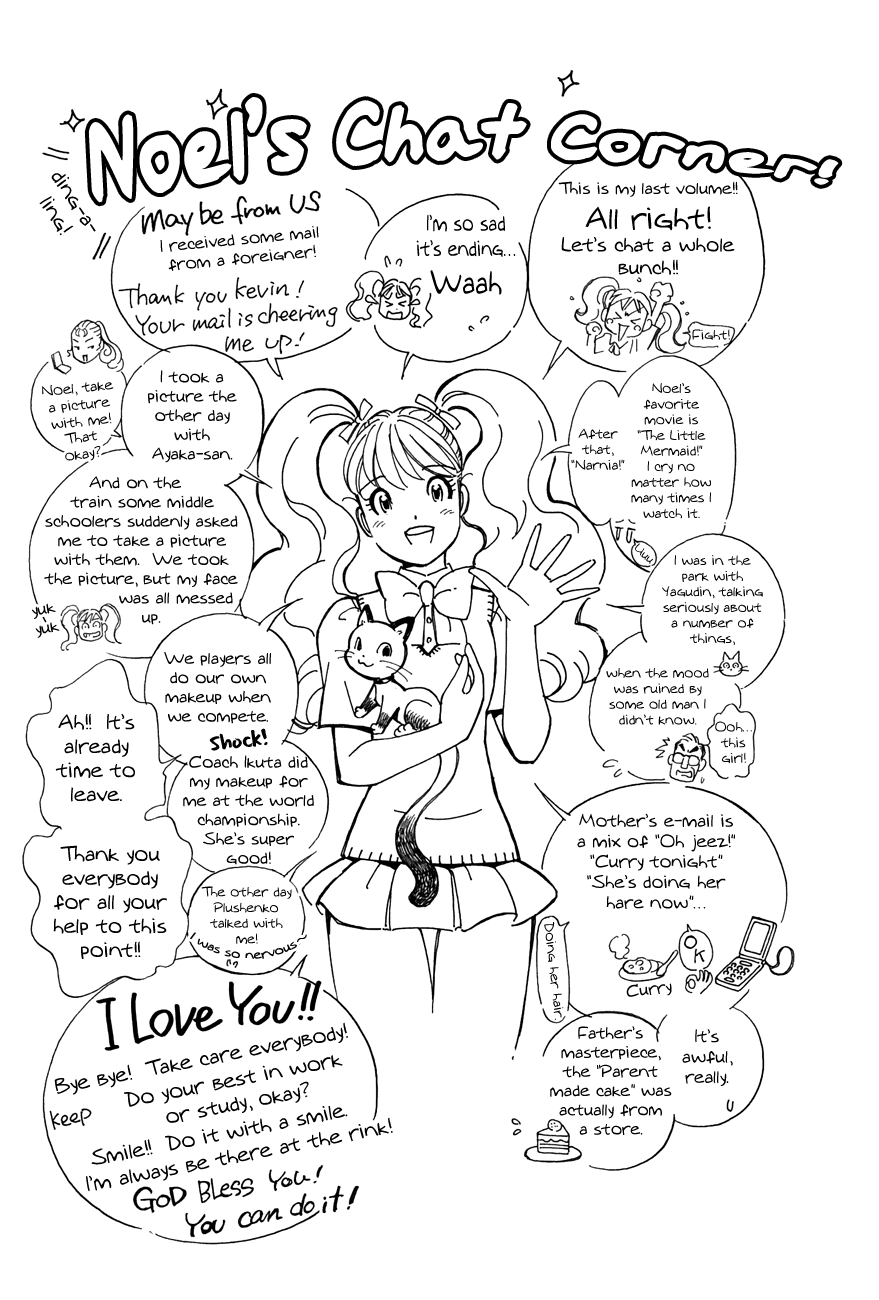 Noel's Chat Corner!
ding-a-
ling!
This is my last volume!!
All right!
Let's chat a whole
bunch!!
Fight!
I'm so sad
it's ending...
Waah
Maybe from US
I received some mail
from a foreigner!
Thank you kevin!
Your mail is cheering
me up!
Noel's
favorite
movie is
"The Little
Mermaid!"
I cry no
matter how
many times I
watch it.
After
that,
"Narnia!"
Uuu
I took a
picture the
other day
with
Ayaka-san.
Noel, take
a picture
with me!
That
okay?
And on the
train some middle
schoolers suddenly asked
me to take a picture
with them. We took
the picture, but my face
was all messed
up.
yuk
yuk
I was in the
park with
Yagudin, talking
seriously about
a number of
things,
when the mood
was ruined by
some old man I
didn't know.
Ooh...
this
girl!
We players all
do our own
makeup when
we compete.
Shock!
Coach Ikuta did
my makeup for
me at the world
championship.
She's super
good!
The other day
Plushenko
talked with
me!
I was so nervous~
Mother's e-mail is
a mix of "Oh jeez!"
"Curry tonight"
"She's doing her
hare now"...
OK
Curry
Doing her hair.
Father's
masterpiece,
the "Parent
made cake" was
actually from
a store.
It's
awful,
really.
Ah!! It's
already
time to
leave.
Thank you
everybody
for all your
help to this
point!!
I Love You!!
Bye Bye! Take care everybody!
Keep Do your best in work
or study, okay?
Smile!! Do it with a smile.
I'm always be there at the rink!
God Bless You!
You can do it!